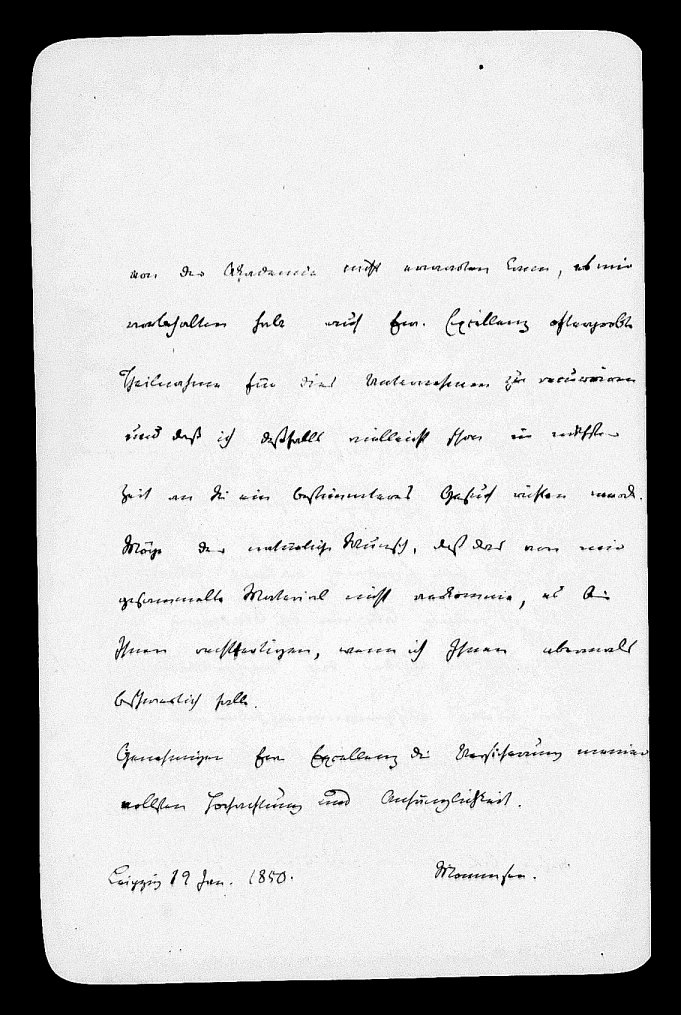 von der Akademie nicht erwarten kann, es mir
vorbehalten habe auch Ew. Excellenz ofterprobte
Theilnahme für dies Unternehmen zu recurriren
und daß ich deßhalb vielleicht schon in nächster
Zeit an Sie ein bestimmteres Gesuch richten werde.
Möge der natürliche Wunsch, daß das von mir
gesammelte Material nicht verkomme, es bei
Ihnen rechtfertigen, wenn ich Ihnen abermals
beschwerlich falle.
Genehmigen Ew Excellenz die Versicherung meiner
vollsten Hochachtung und Anhänglichkeit.
Leipzig 19 Jan. 1850.
Mommsen.